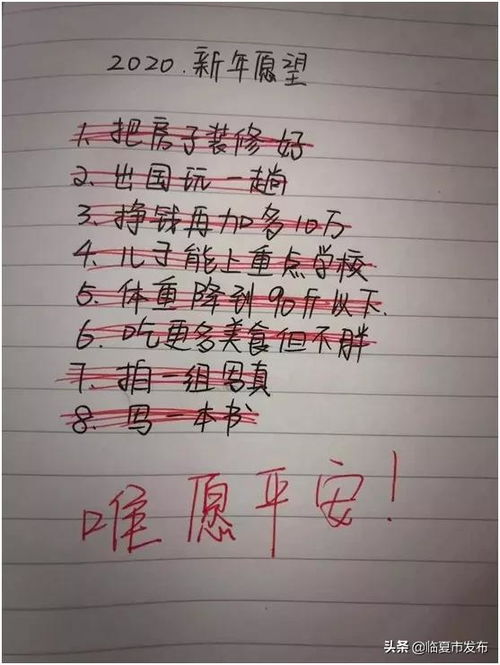 2020.新年愿望
1. 把房子装修好
2. 出国玩一趟
3. 挣钱再加多10万
4. 儿子能上重点学校
5. 体重降到90斤以下.
6. 吃更多美食但不胖
7. 拍一组写真
8. 写一本书
唯愿平安!
头条 @临夏市发布